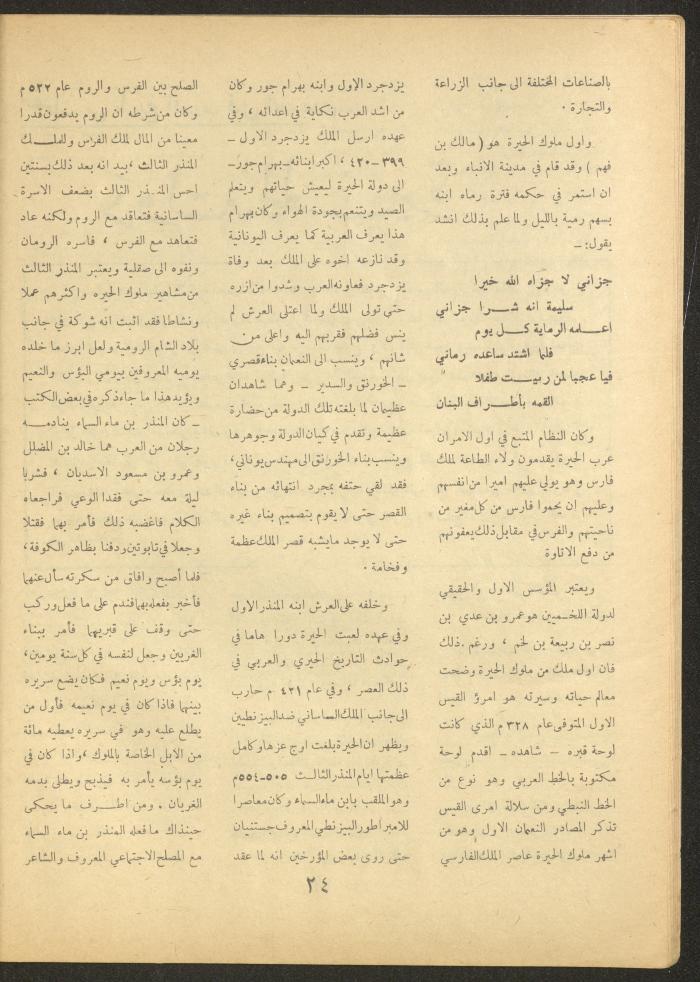 بالصناعات المختلفة الى جانب الزراعة
والتجارة ٠
واول ملوك الحيرة هو ( مالك بن
فهم ) وقد قام في مدينة الانباء وبعد
ان استمر في حكمه فترة رماه ابنه
بسهم رمية بالليل ولما علم بذلك انشد
يقول: ـ
جزاني لا جزاه الله خيرا
سليمة انه شرا جزاني
اعلمه الرماية كل يوم
فلما اشتد ساعده رماني
فيا عجبا لمن ربيت طفلا
القمه بأطراف البنان
وكان النظام المتبع في اول الامران
عرب الحيرة يقدمون ولاء الطاعة لملك
فارس وهو يولي عليهم اميرا من انفسهم
وعليهم ان يحموا فارس من كل مغير من
ناحيتهم والفرس في مقابل ذلك يعفونهم
من دفع الاتاوة
ويعتبر المؤسس الاول والحقيقي
لدولة اللخميين هو عمرو بن عدي بن
نصر بن ربيعة بن لخم ، ورغم ذلك
فان اول ملك من ملوك الحيرة وضحت
معالم حياته وسيرته هو امرؤ القيس
الاول المتوفى عام ٣٢٨ م الذي كانت
لوحة قبره ـ شاهده ـ اقدم لوحة
مكتوبة بالخط العربي وهو نوع من
الخط النبطي ومن سلالة امرى القيس
تذكر المصادر النعمان الاول وهو من
اشهر ملوك الحيرة عاصر الملك الفارسي
يزدجرد الاول وابنه بهرام جور وكان
من اشد العرب نكاية في اعدائه ، وفي
عهده ارسل الملك يزدجرد الاول ـ
٣٩٩ ـ ٤٢٠ ، اكبر ابنائه ـ بهرام جور ـ
الى دولة الحيرة ليعيش حياتهم ويتعلم
الصيد ويتنعم بجودة الهواء وكان بهرام
هذا يعرف العربية كما يعرف اليونانية
وقد نازعه اخوه على الملك بعد وفاة
يزدجرد فعاونه العرب وشدوا من ازره
حتى تولى الملك ولما اعتلى العرش لم
ينس فضلهم فقربهم اليه واعلى من
شانهم ، وينسب الى النعمان بناء قصري
ـ الخورنق والسدير ـ وهما شاهدان
عظيمان لما بلغته تلك الدولة من حضارة
عظيمة وتقدم في كيان الدولة وجوهرها
وينسب بناء الخورنق الى مهندس يوناني،
فقد لقي حتفه بمجرد انتهائه من بناء
القصر حتى لا يقوم بتصميم بناء غيره
حتى لا يوجد ما يشبه قصر الملك عظمة
وفخامة ٠
وخلفه على العرش ابنه المنذر الاول
وفي عهده لعبت الحيرة دورا هاما في
حوادث التاريخ الحيري والعربي في
ذلك العصر ، وفي عام ٤٢١ م حارب
الى جانب الملك الساساني ضد البيزنطيين
ويظهر ان الحيرة بلغت اوج عزها وكامل
عظمتها ايام المنذر الثالث ٥٠٥ـ٥٥٤م
وهو الملقب بابن ماء السماء وكان معاصرا
للامبراطور البيزنطي المعروف جستنيان
حتى روى بعض المؤرخين انه لما عقد
الصلح بين الفرس والروم عام ٥٣٢ م
وكان من شرطه ان الروم يدفعون قدرا
معينا من المال لملك الفرس وللملك
المنذر الثالث ، بيد انه بعد ذلك بسنتين
احس المنذر الثالث بضعف الاسرة
الساسانية فتعاقد مع الروم ولكنه عاد
فتعاهد مع الفرس ، فاسره الرومان
ونفوه الى صقلية ويعتبر المنذر الثالث
من مشاهير ملوك الحيره واكثرهم عملا
ونشاطا فقد اثبت انه شوكة في جانب
بلاد الشام الرومية ولعل ابرز ما خلده
يوميه المعروفين بيومي البؤس والنعيم
ويؤيد هذا ما جاء ذكره في بعض الكتب
ـ كان المنذر بن ماء السماء ينادمه
رجلان من العرب هما خالد بن المضلل
وعمرو بن مسعود الاسديان ، فشربا
ليلة معه حتى فقدا الوعي فراجعاه
الكلام فاغضبه ذلك فأمر بهما فقتلا
وجعلا في تابوتين ودفنا بظاهر الكوفة،
فلما أصبح وافاق من سكرته سأل عنهما
فأخبر بفعله بهما فندم على ما فعل وركب
حتى وقف على قبريهما فأمر ببناء
الغريين وجعل لنفسه في كل سنة يومين،
يوم بؤس ويوم نعيم فكان يضع سريره
بينهما فاذا كان في يوم نعيمه فأول من
يطلع عليه وهو في سريره يعطيه مائة
من الابل الخاصة بالملوك ، واذا كان في
يوم بؤسه يأمر به فيذبح ويطلى بدمه
الغريان . ومن اطرف ما يحكى
حينذاك ما فعله المنذر بن ماء السماء
مع المصلح الاجتماعي المعروف والشاعر
٢٤